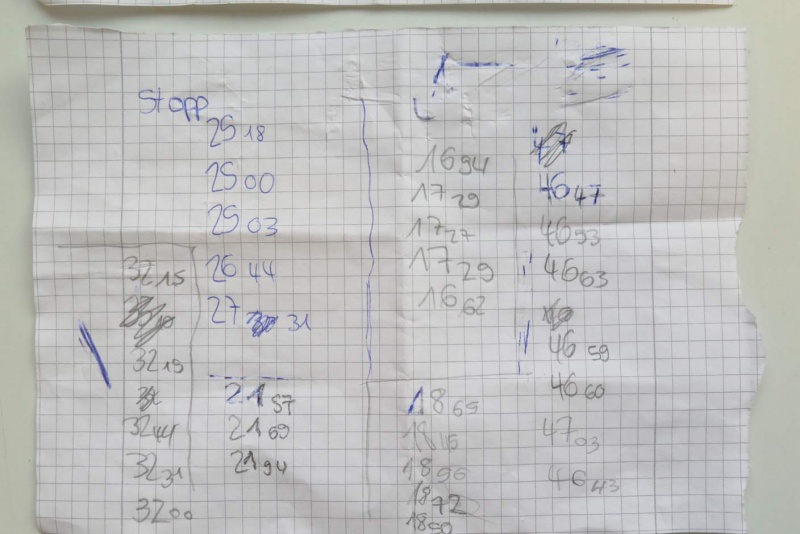 Stopp
25 18
25 00
25 03
26 44
27 31
32 15
32 19
32 44
32 31
32 00
21 57
21 69
21 94
16 94
17 29
17 27
17 29
16 62
18 65
18 16
18 96
18 72
18 50
46 47
46 93
46 63
46 59
46 60
47 03
46 43